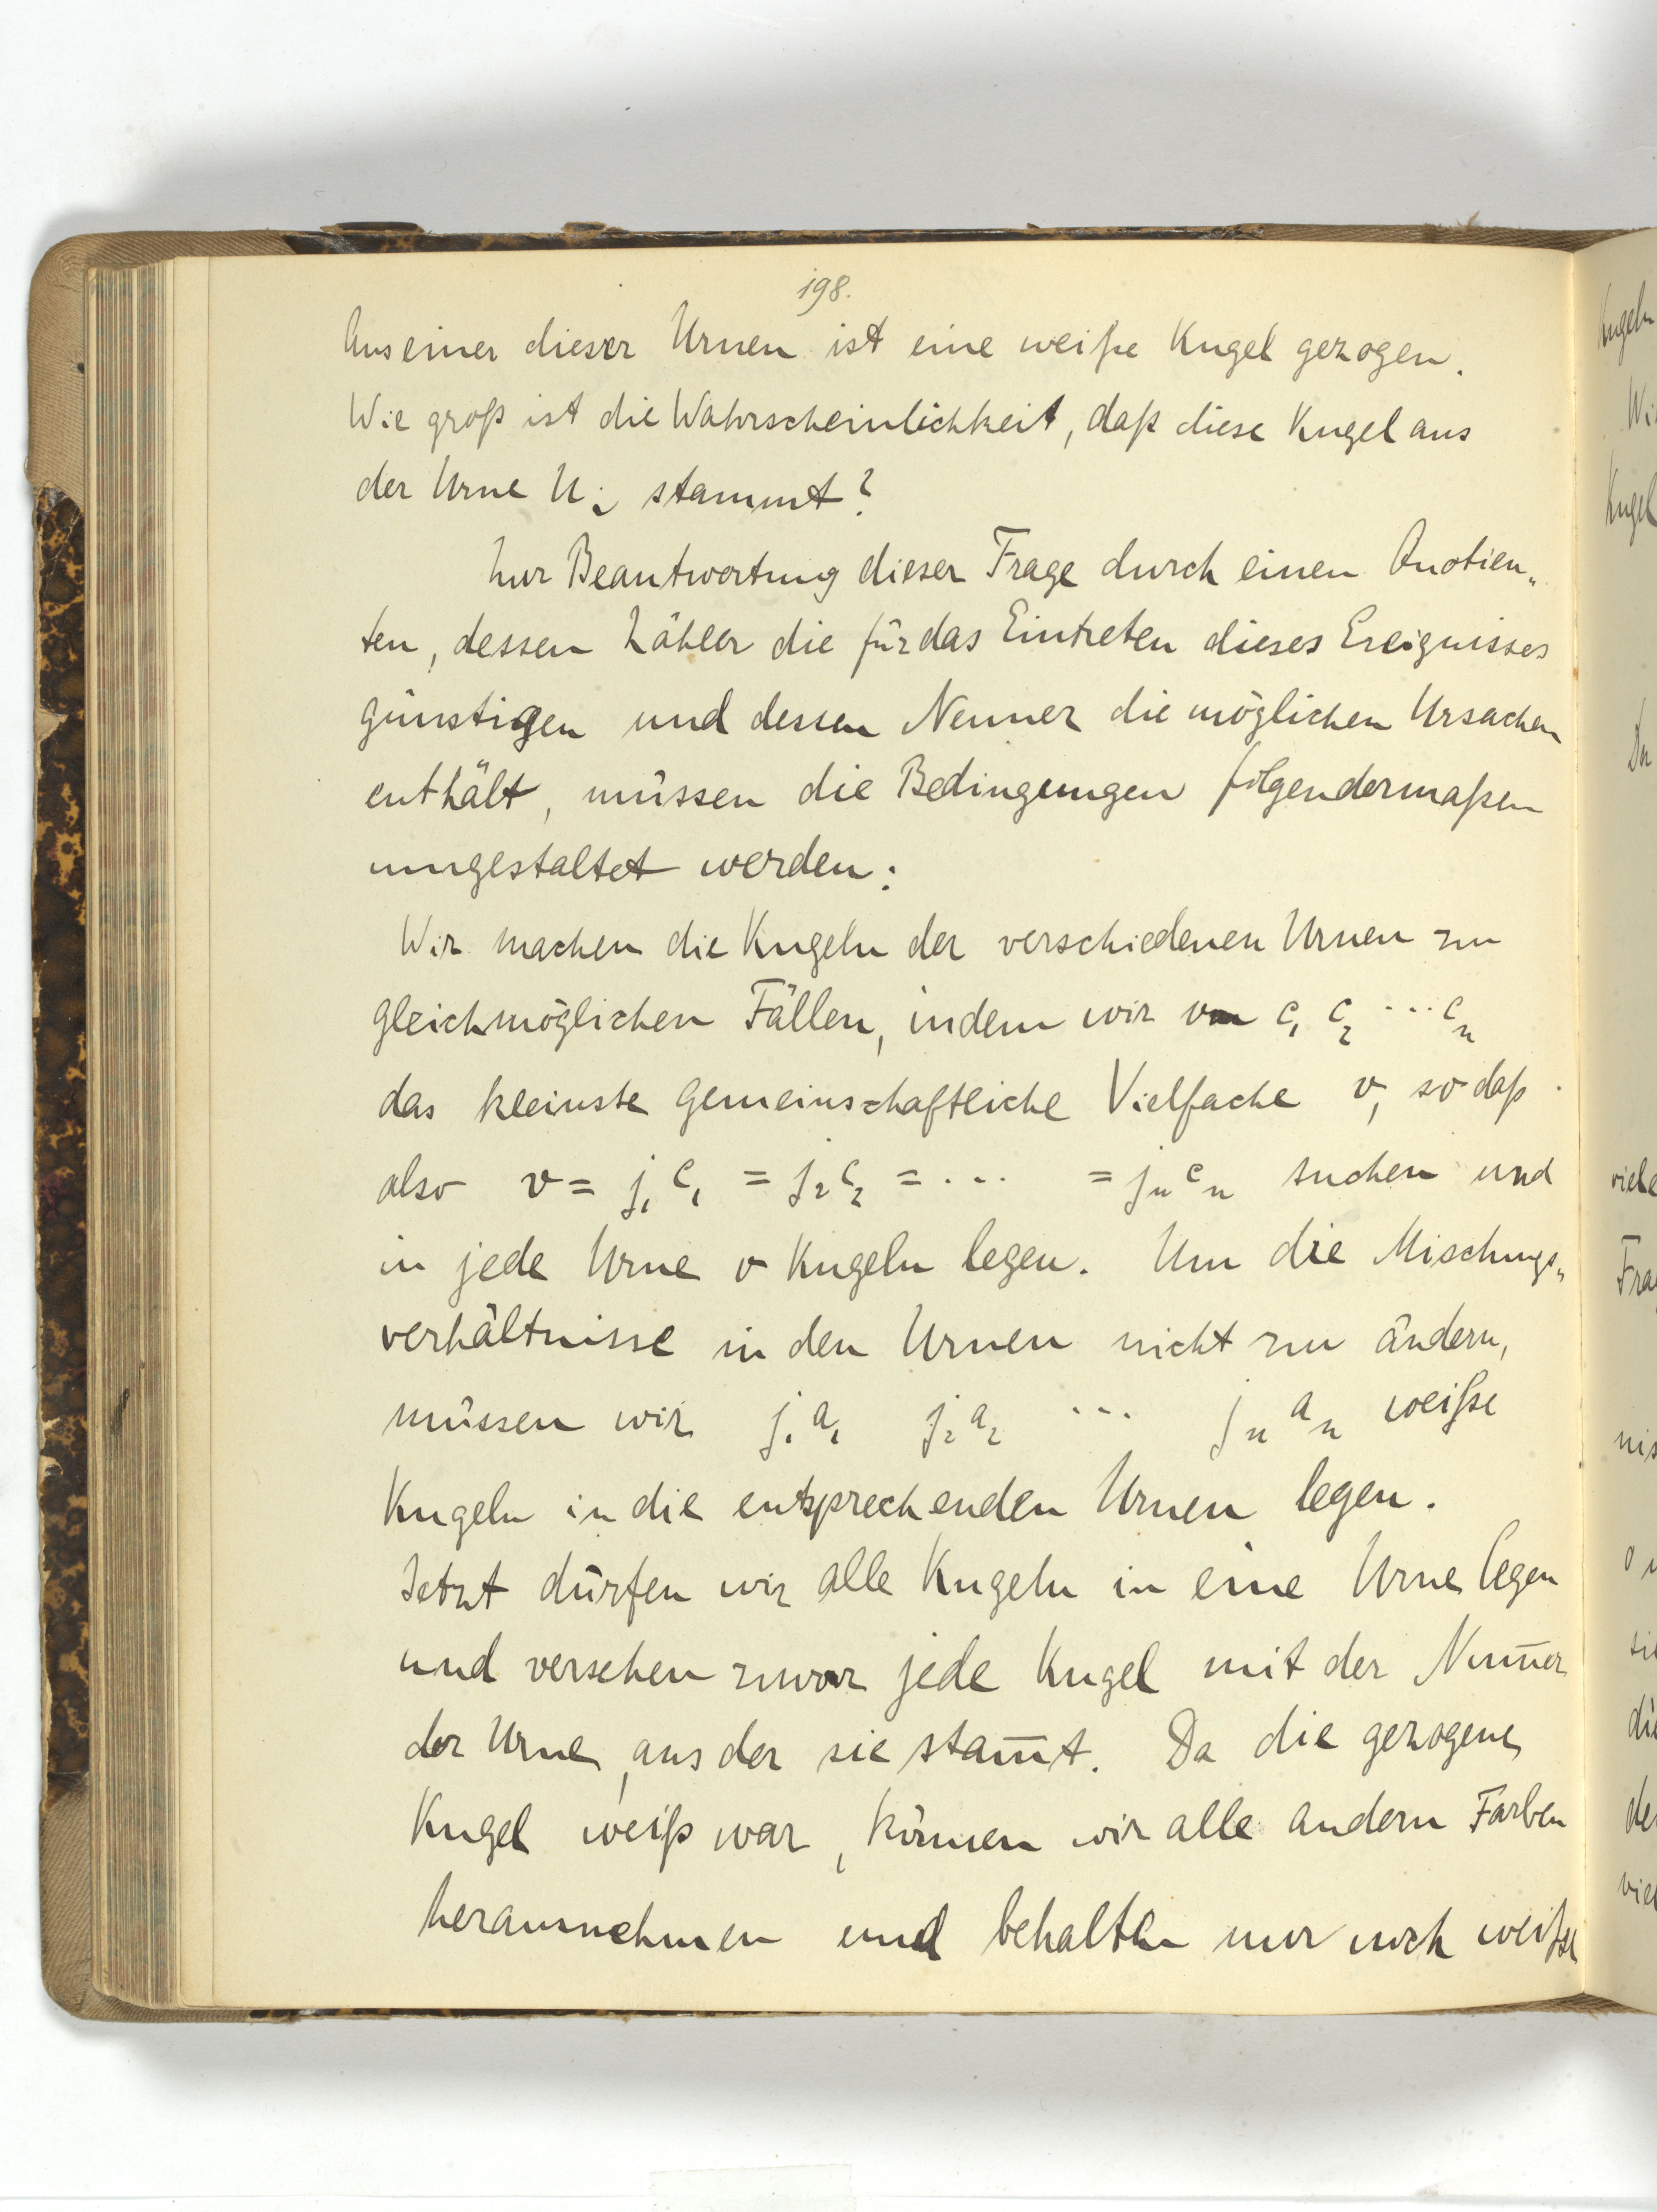 198.
Aus einer dieser Urnen ist eine weiße Kugel gezogen.
Wie groß ist die Wahrscheinlichkeit, daß diese Kugel aus
der Urne U_i stammt?
Zur Beantwortung dieser Frage durch einen Quotien„
ten, dessen Zähler die für das Eintreten dieses Ereignisses
günstigen und dessen Nenner die möglichen Ursachen
enthält, müssen die Bedingungen folgendermaßen
umgestaltet werden:
Wir machen die Kugeln der verschiedenen Urnen zu
gleichmöglichen Fällen, indem wir von c₁ c₂ ... cₙ
das kleinste gemeinschaftliche Vielfache v, so daß
also v = j₁c₁ = j₂c₂ = ... = jₙcₙ suchen und
in jede Urne v Kugeln legen. Um die Mischungs„
verhältnisse in den Urnen nicht zu ändern,
müssen wir j₁a₁ j₂a₂ ... jₙaₙ weiße
Kugeln in die entsprechenden Urnen legen.
Jetzt dürfen wir alle Kugeln in eine Urne legen
und versehen zwar jede Kugel mit der Num̅er
der Urne, aus der sie stam̅t. Da die gezogene
Kugel weiß war, können wir alle andern Farben
herausnehmen und behalten nur noch weiße